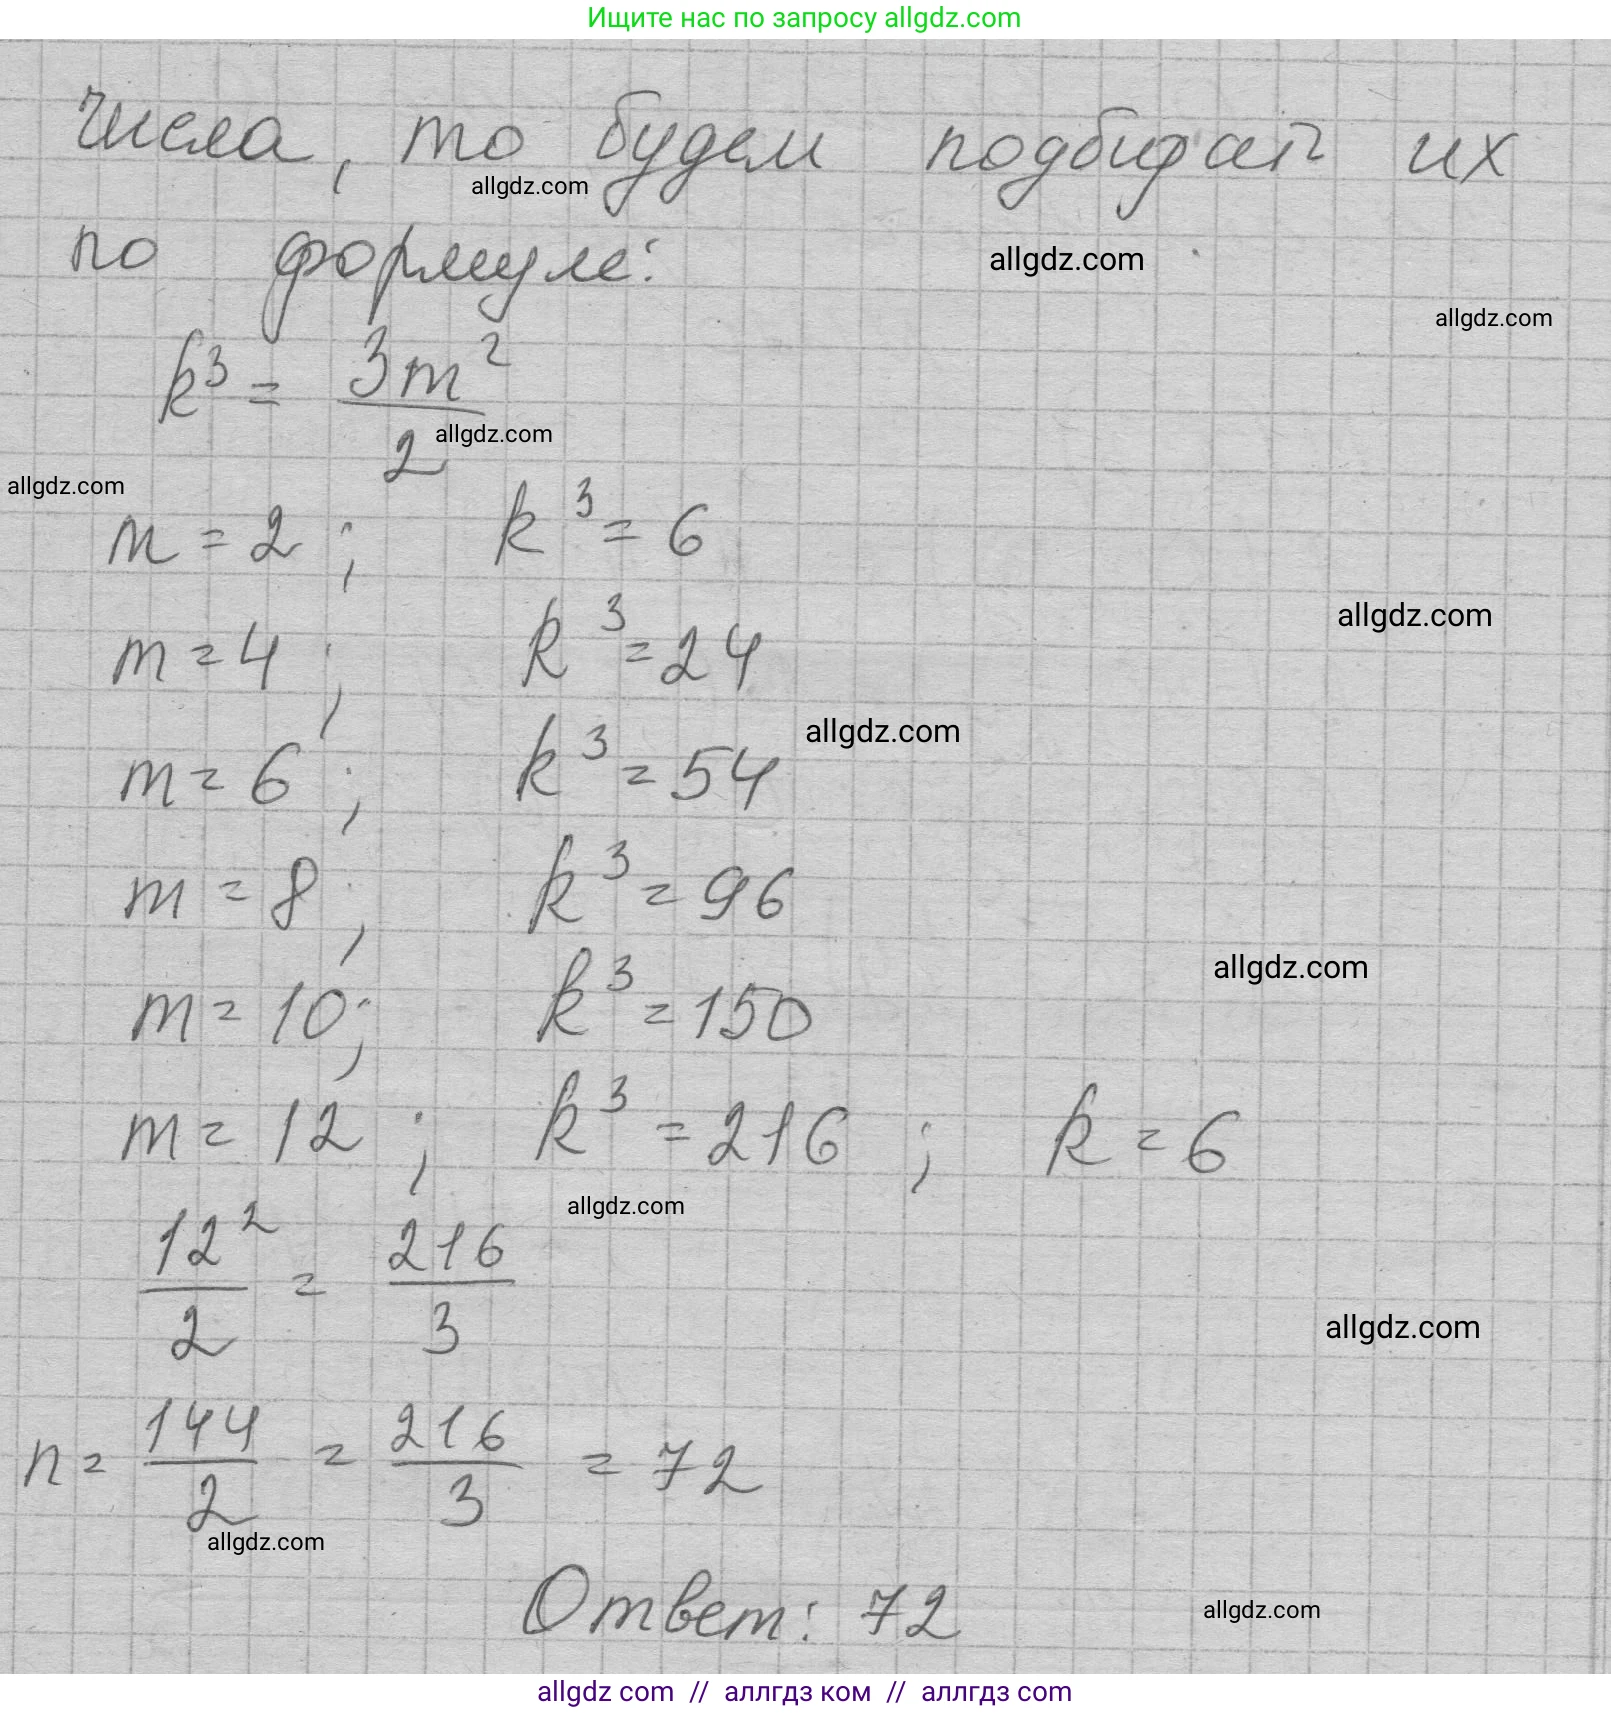 Ищите нас по запросу allgdz.com
числа, то будем подбирать их
allgdz.com
по формуле:
allgdz.com
allgdz.com
k³ = 3m²/2
allgdz.com
allgdz.com
m = 2; k³ = 6
allgdz.com
m = 4; k³ = 24
allgdz.com
m = 6; k³ = 54
m = 8; k³ = 96
allgdz.com
m = 10; k³ = 150
m = 12; k³ = 216; k = 6
allgdz.com
12²/2 = 216/3
allgdz.com
n = 144/2 = 216/3 = 72
allgdz.com
Ответ: 72
allgdz.com
allgdz com // аллгдз ком // аллгдз com